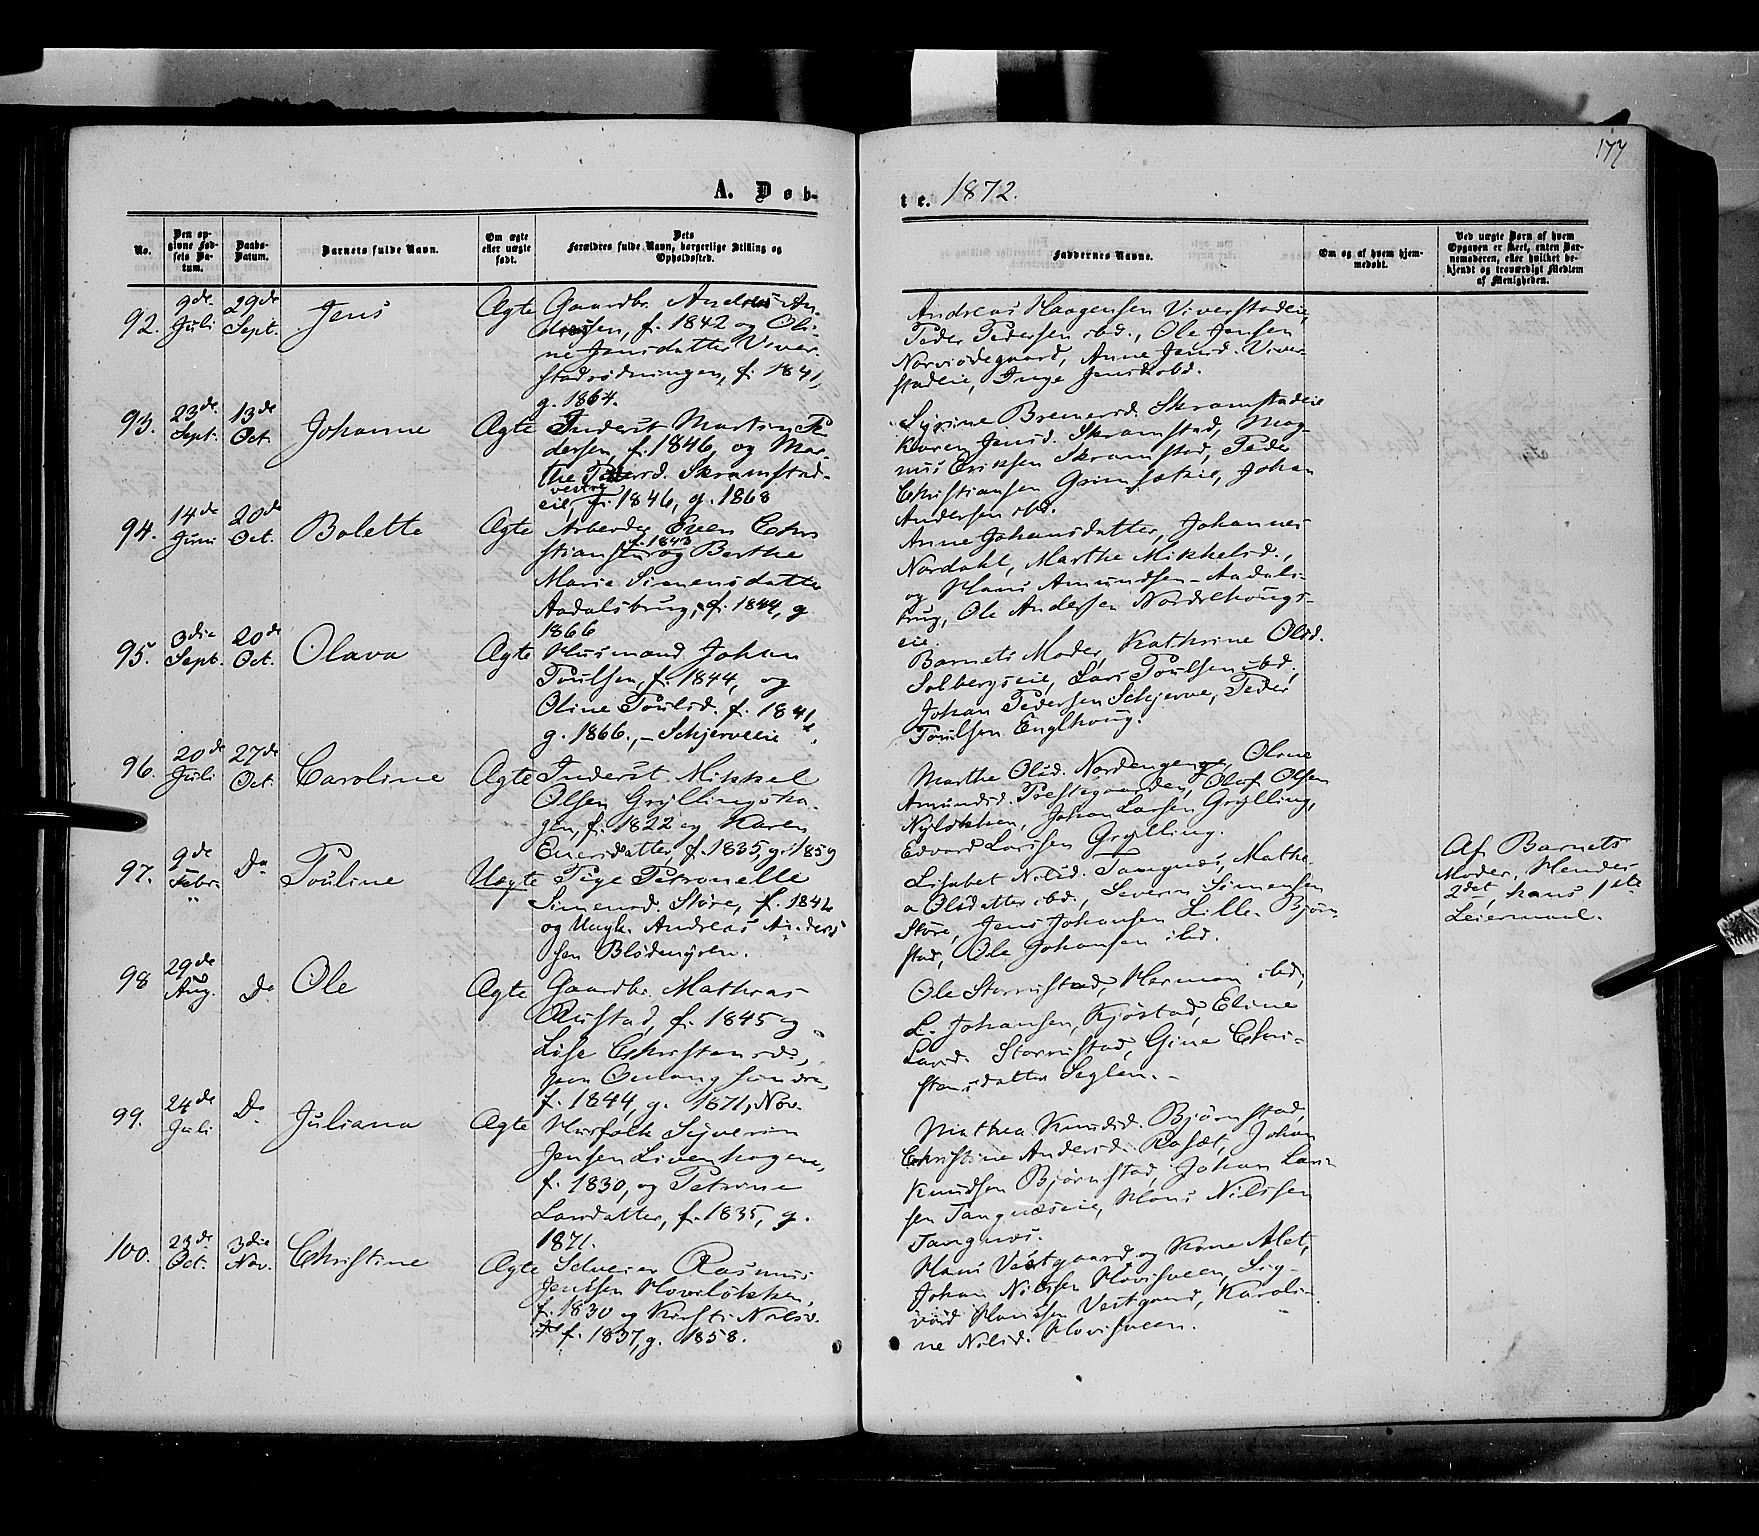 177
A. Døb-
te. 1872.
No.
Den op-
givne Fød-
sels Da-
tum.
Daabs-
Datum.
Barnets fulde Navn.
Om ægte
eller uægte
født.
Dets
Forældres fulde Navn, borgerlige Stilling og
Opholdssted.
Faddernes Navne.
Om og af hvem hjem-
medøbt.
Ved uægte Børn af hvem
Opgaven er skeet, enten Bar-
nemoderen, eller hvilket be-
kjendt og troværdigt Medlem
af Menigheden.
92.
9de
Juli
29de
Sept.
Jens
Ægte
Gaardbr. Andreas An-
dersen, f. 1842 og Oli-
ne Jensdatter Viver-
stadrødningen, f. 1841,
g. 1864.
Andreas Haagensen Viverstadeie,
Peder Pedersen ibd., Ole Jensen
Norviodegaard, Anne Jensd. Viver-
stadeie, Inge Jensd. ibd.
93.
23de
Sept.
13de
Oct.
Johanne
Ægte
Inderst Martin Pe
dersen, f. 1846, og Mar-
the Pedersd. Skramstad-
vestre
eie, f. 1846, g. 1868
Syrine Bremersd. Skramstadeie
Karen Jensd. Skramstad, Mag-
nus Eriksen Skramstad, Peder
Christiansen Grimsøeie, Johan
Andersen ibd.
94.
14de
Juni
20de
Oct.
Bolette
Ægte
Arbeider Even Chri
f. 1843
stiansen og Berthe
Marie Simensdatter
Aadalsbrug, f. 1844, g.
1866
Anne Johansdatter, Johannes
Nordahl, Marthe Mikkelsd.,
og Hans Amundsen Aadals-
brug, Ole Andersen Nordrehougs-
eie.
95.
3die
Sept.
20de
Oct.
Olava
Ægte
Husmand Johan
Poulsen, f. 1844, og
Oline Poulsd. f. 1841,
g. 1866., - Schjerveeie.
Barnets Moder, Kathrine Olsd.
Solbergseie, Lars Poulsen ibd,
Johan Pedersen Schjerve, Peder
Poulsen Englhoug.
96.
20de
Juli
27de
Oct.
Caroline
Ægte
Inderst Mikkel
Olsen Gryllingsha-
gen, f. 1822 og Karen
Eversdatter, f. 1835, g. 1859
Marthe Olsd. Nordengen, Oline
Amundsd. Prestegaarden, Oluf Olsen
Nyløkken, Johan Larsen Grylling,
Edvard Larsen Grylling.
97.
9de
Febr.
"
Do
Pouline
Uægte
Pige Petronelle
Simensd. Støre, f. 1842
og Ungk. Andreas Anders
sen Blødemyren.
Lisabet Nilsd. Tangnæs, Mathe-
a Olsdatter ibd., Severin Simensen
Støre, Jens Johansen Lille-Bjørn-
stad, Ole Johansen ibd.
Af Barnets
Moder, Hendes
2det, hans 1ste
Leiermaal.
98
29de
Aug.
Do
Ole
Ægte
Gaardbr. Mathias
Austad, f. 1845 og
Lise Christensd.,
f. 1844, g. 1871, Nov.
Ole Stormstad, Herman ibd,
L. Johansen, Kjøstad, Eline
Larsd. Stormstad, Gine Chri-
stensdatter Seglen. -
99.
24de
Juli
Do
Juliana
Ægte
Husfolk Syverin
Jensen Livenhagen,
f. 1830, og Petrine
Larsdatter, f. 1835, g.
1871.
Mathea Knudsd. Bjørnstad,
Christine Andersd. Rosæt, Johan
Knudsen Bjørnstad, Johan Lar-
sen Tangnæseie, Hans Nilssen
Tangnæs.
100.
23de
Oct.
3die
Nov.
Christine
Ægte
Selveier Rasmus
Jenssen Hovisløkken,
f. 1830 og Kirsti Nilsd.
f. 1837, g. 1858.
Hans Vestgaard og Kone Alet,
Johan Nilssen Hovisveen, Sig-
vard Hanssen Vestgaard, Karoli-
ne Nilsd. Hovisveen.